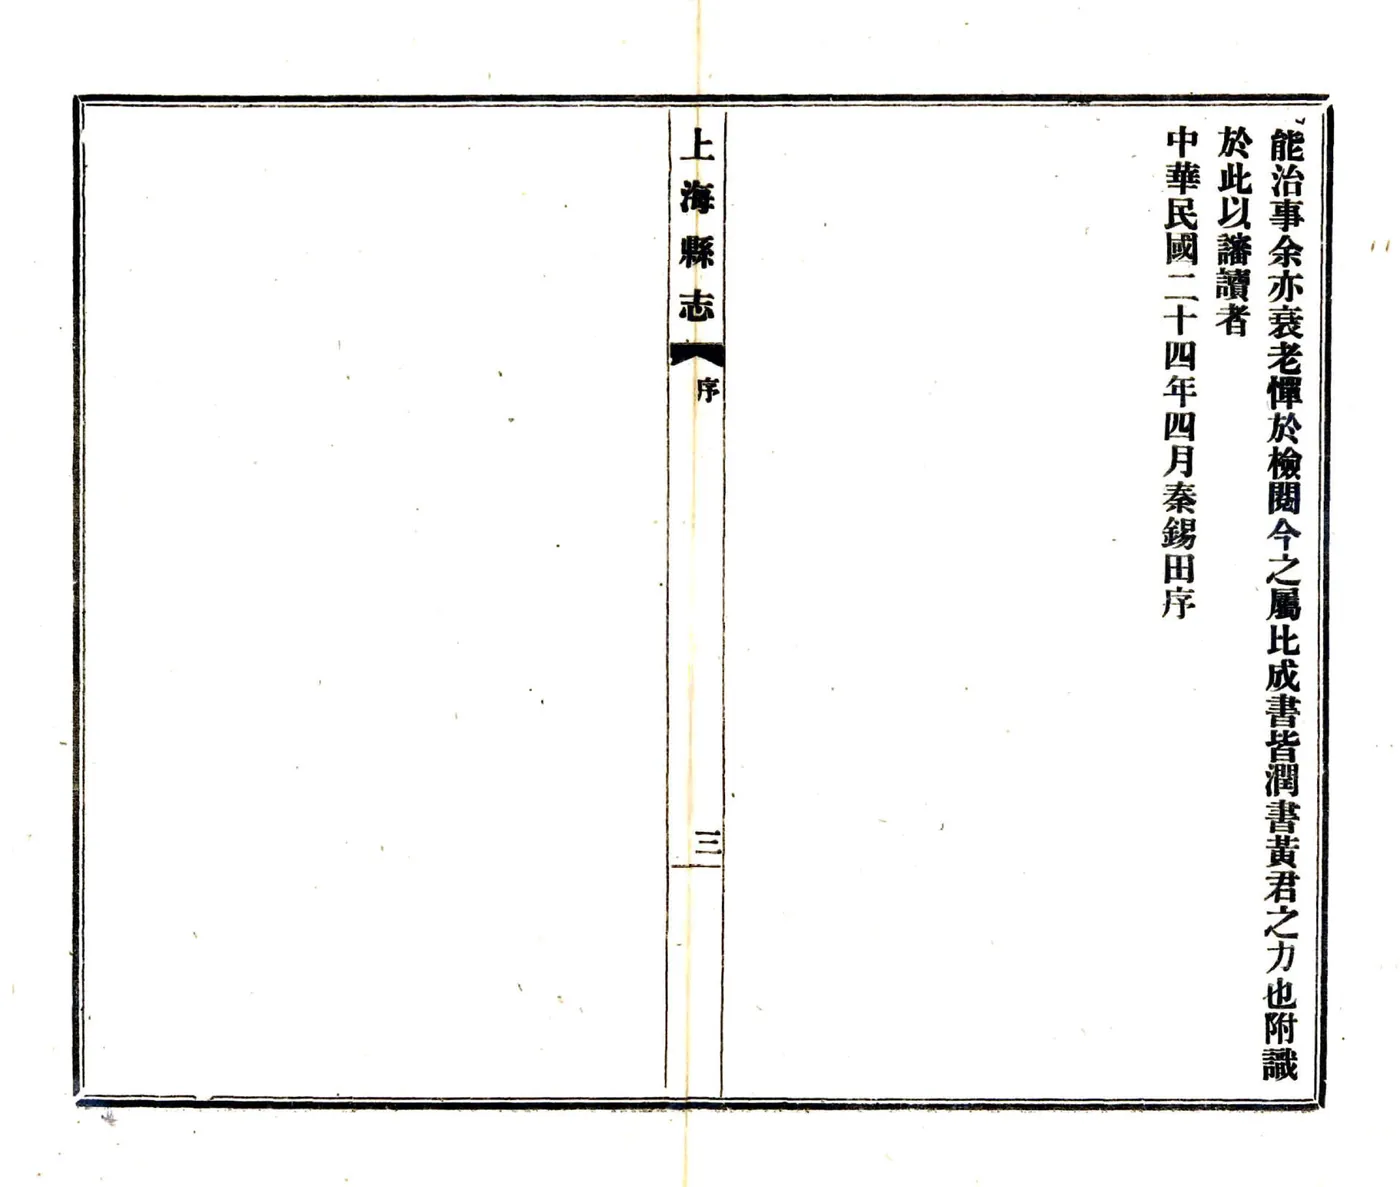 能治事余亦衰老憚於檢閱今之屬比成書皆潤書黃君之力也附識
於此以讅讀者
中華民國二十四年四月秦錫田序
上海縣志
序
三